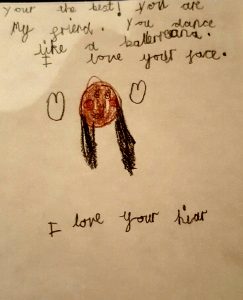 Your the best! You are
My friend. You dance
like a ballereana.
I love your face.
I love your hiar